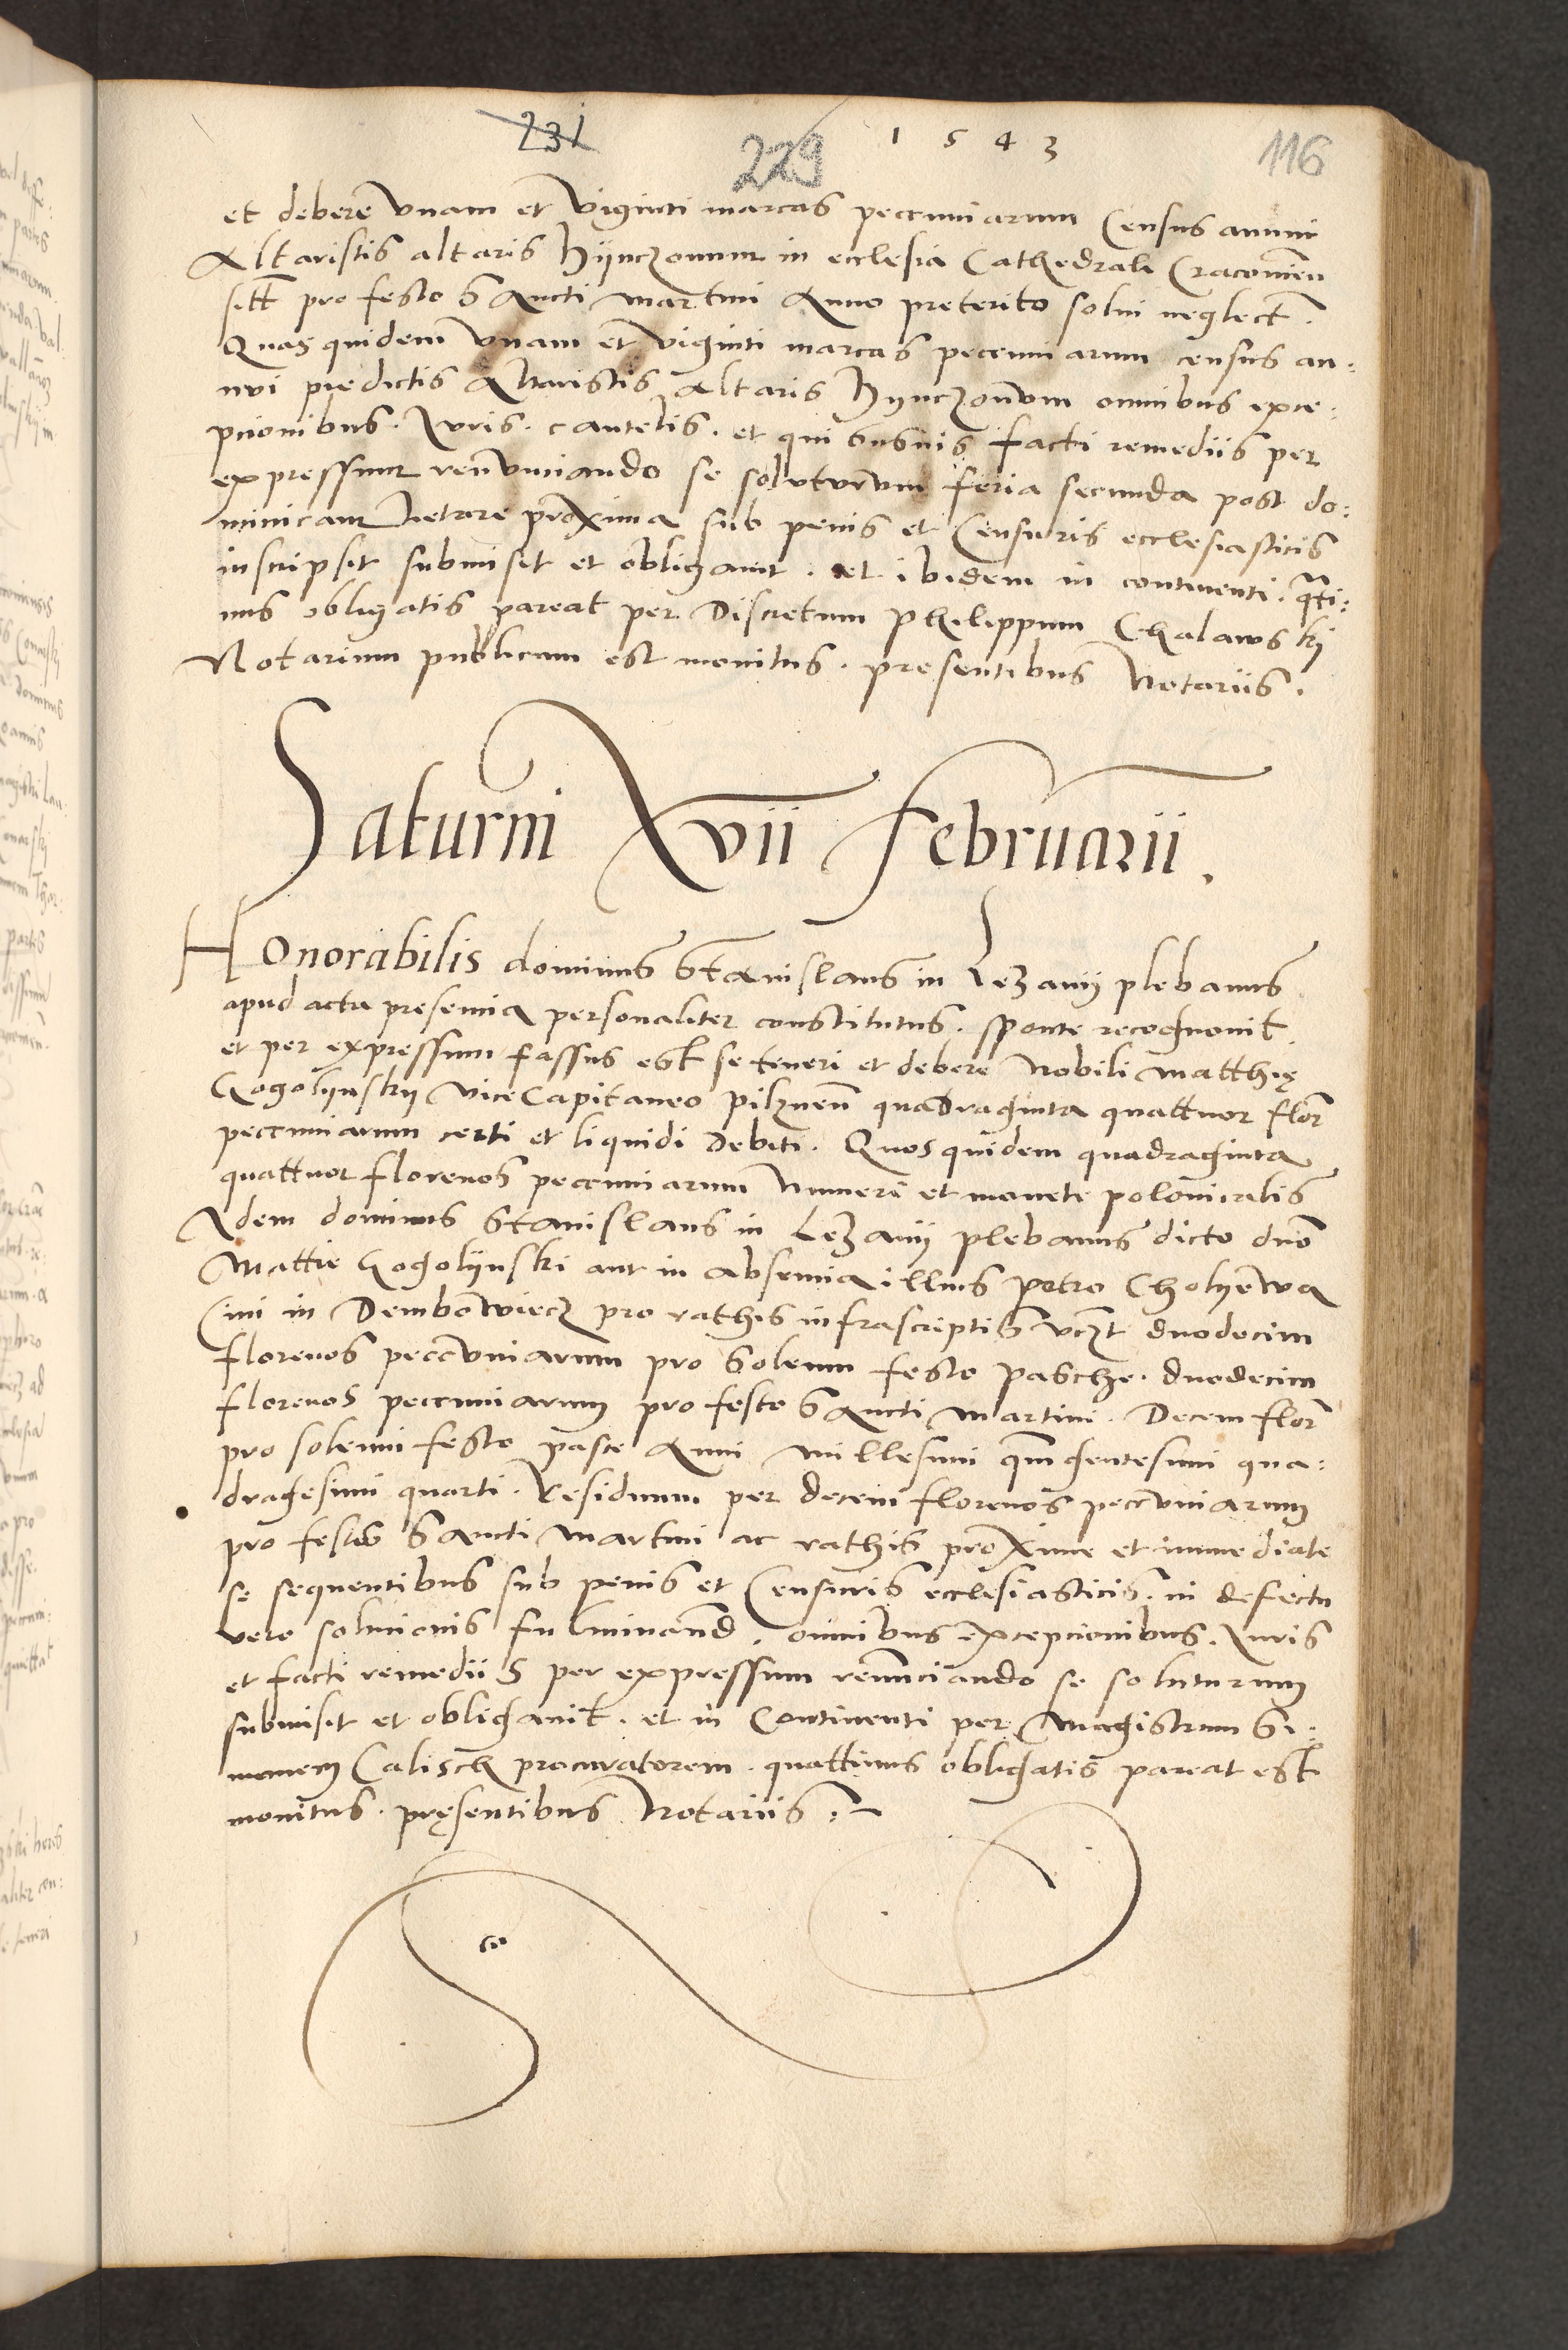 231
229
1543
116
et debere vnam et viginti marcas peccuniarum Census annui
Altaristis altaris Hÿnczonum in ecclesia Cathedrali Cracovien
sitt pro festo Sancti Martini Anno preterito solui neglect.
Quas quidem vnam et viginti marcas peccuniarum census an:
nui predictis Altaristis Altaris Hynczonum omnibus exce:
pcionibus. Iuris. cautelis. et quibusuis facti remediis per
expressum renuncciando se soluturum feria secunda post do:
minicam Letare proxima sub penis et Censuris ecclesiasticis
inscripsit submisit et obligauit. et ibidem in continenti. qti:
nus obligatis pareat per Discretum Philippum Chalawskj
Notarium publicum est monitus. presentibus Notariis.
Saturni Xvii Februarii.
Honorabilis dominus Stanislaus in Lezanÿ plebanus
apud acta presencia personaliter constitutus. sponte recognouit.
et per expressum fassus est se teneri et debere Nobili Matthię
Gogolÿnskÿ viceCapitaneo pilznen quadraginta quattuor flor
peccuniarum certi et liquidi debiti. Quos quidem quadraginta
quattuor florenos peccuniarum Numeri et monete polonicalis
Idem dominus Stanislaus in Lezanÿ plebanus dicto dno
Mattie Gogolÿnski aut in absencia illius petro Cholyewa
Ciui in Dembowiecz pro rathis infrascriptis vczt duodecim
florenos peccuniarum pro Solenni festo pasche. duodecim
florenos peccuniarum pro festo Sancti Martini. Decem flor
pro solenni festo pasce Anni Millesimi quingentesimi qua:
dragesimi quarti. Residuum per decem florenos peccuniarum
pro festo Sancti Martini ac rathis proxime et immediate
se sequentibus sub penis et Censuris ecclesiasticis. in defectu
vero solucionis fulminand. omnibus excepcionibus. Iuris
et facti remediis per expressum renunciando se soluturum
submisit et obligauit. et in Continenti per Magistrum Si:
monem Calisch procuratorem. quattinus obligatis pareat est
monitus. pręsentibus Notariis.